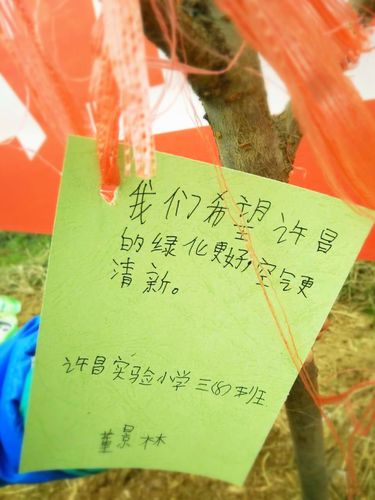 我们希望许昌
的绿化更好,空气更
清新。
许昌实验小学三(8)班
董景林